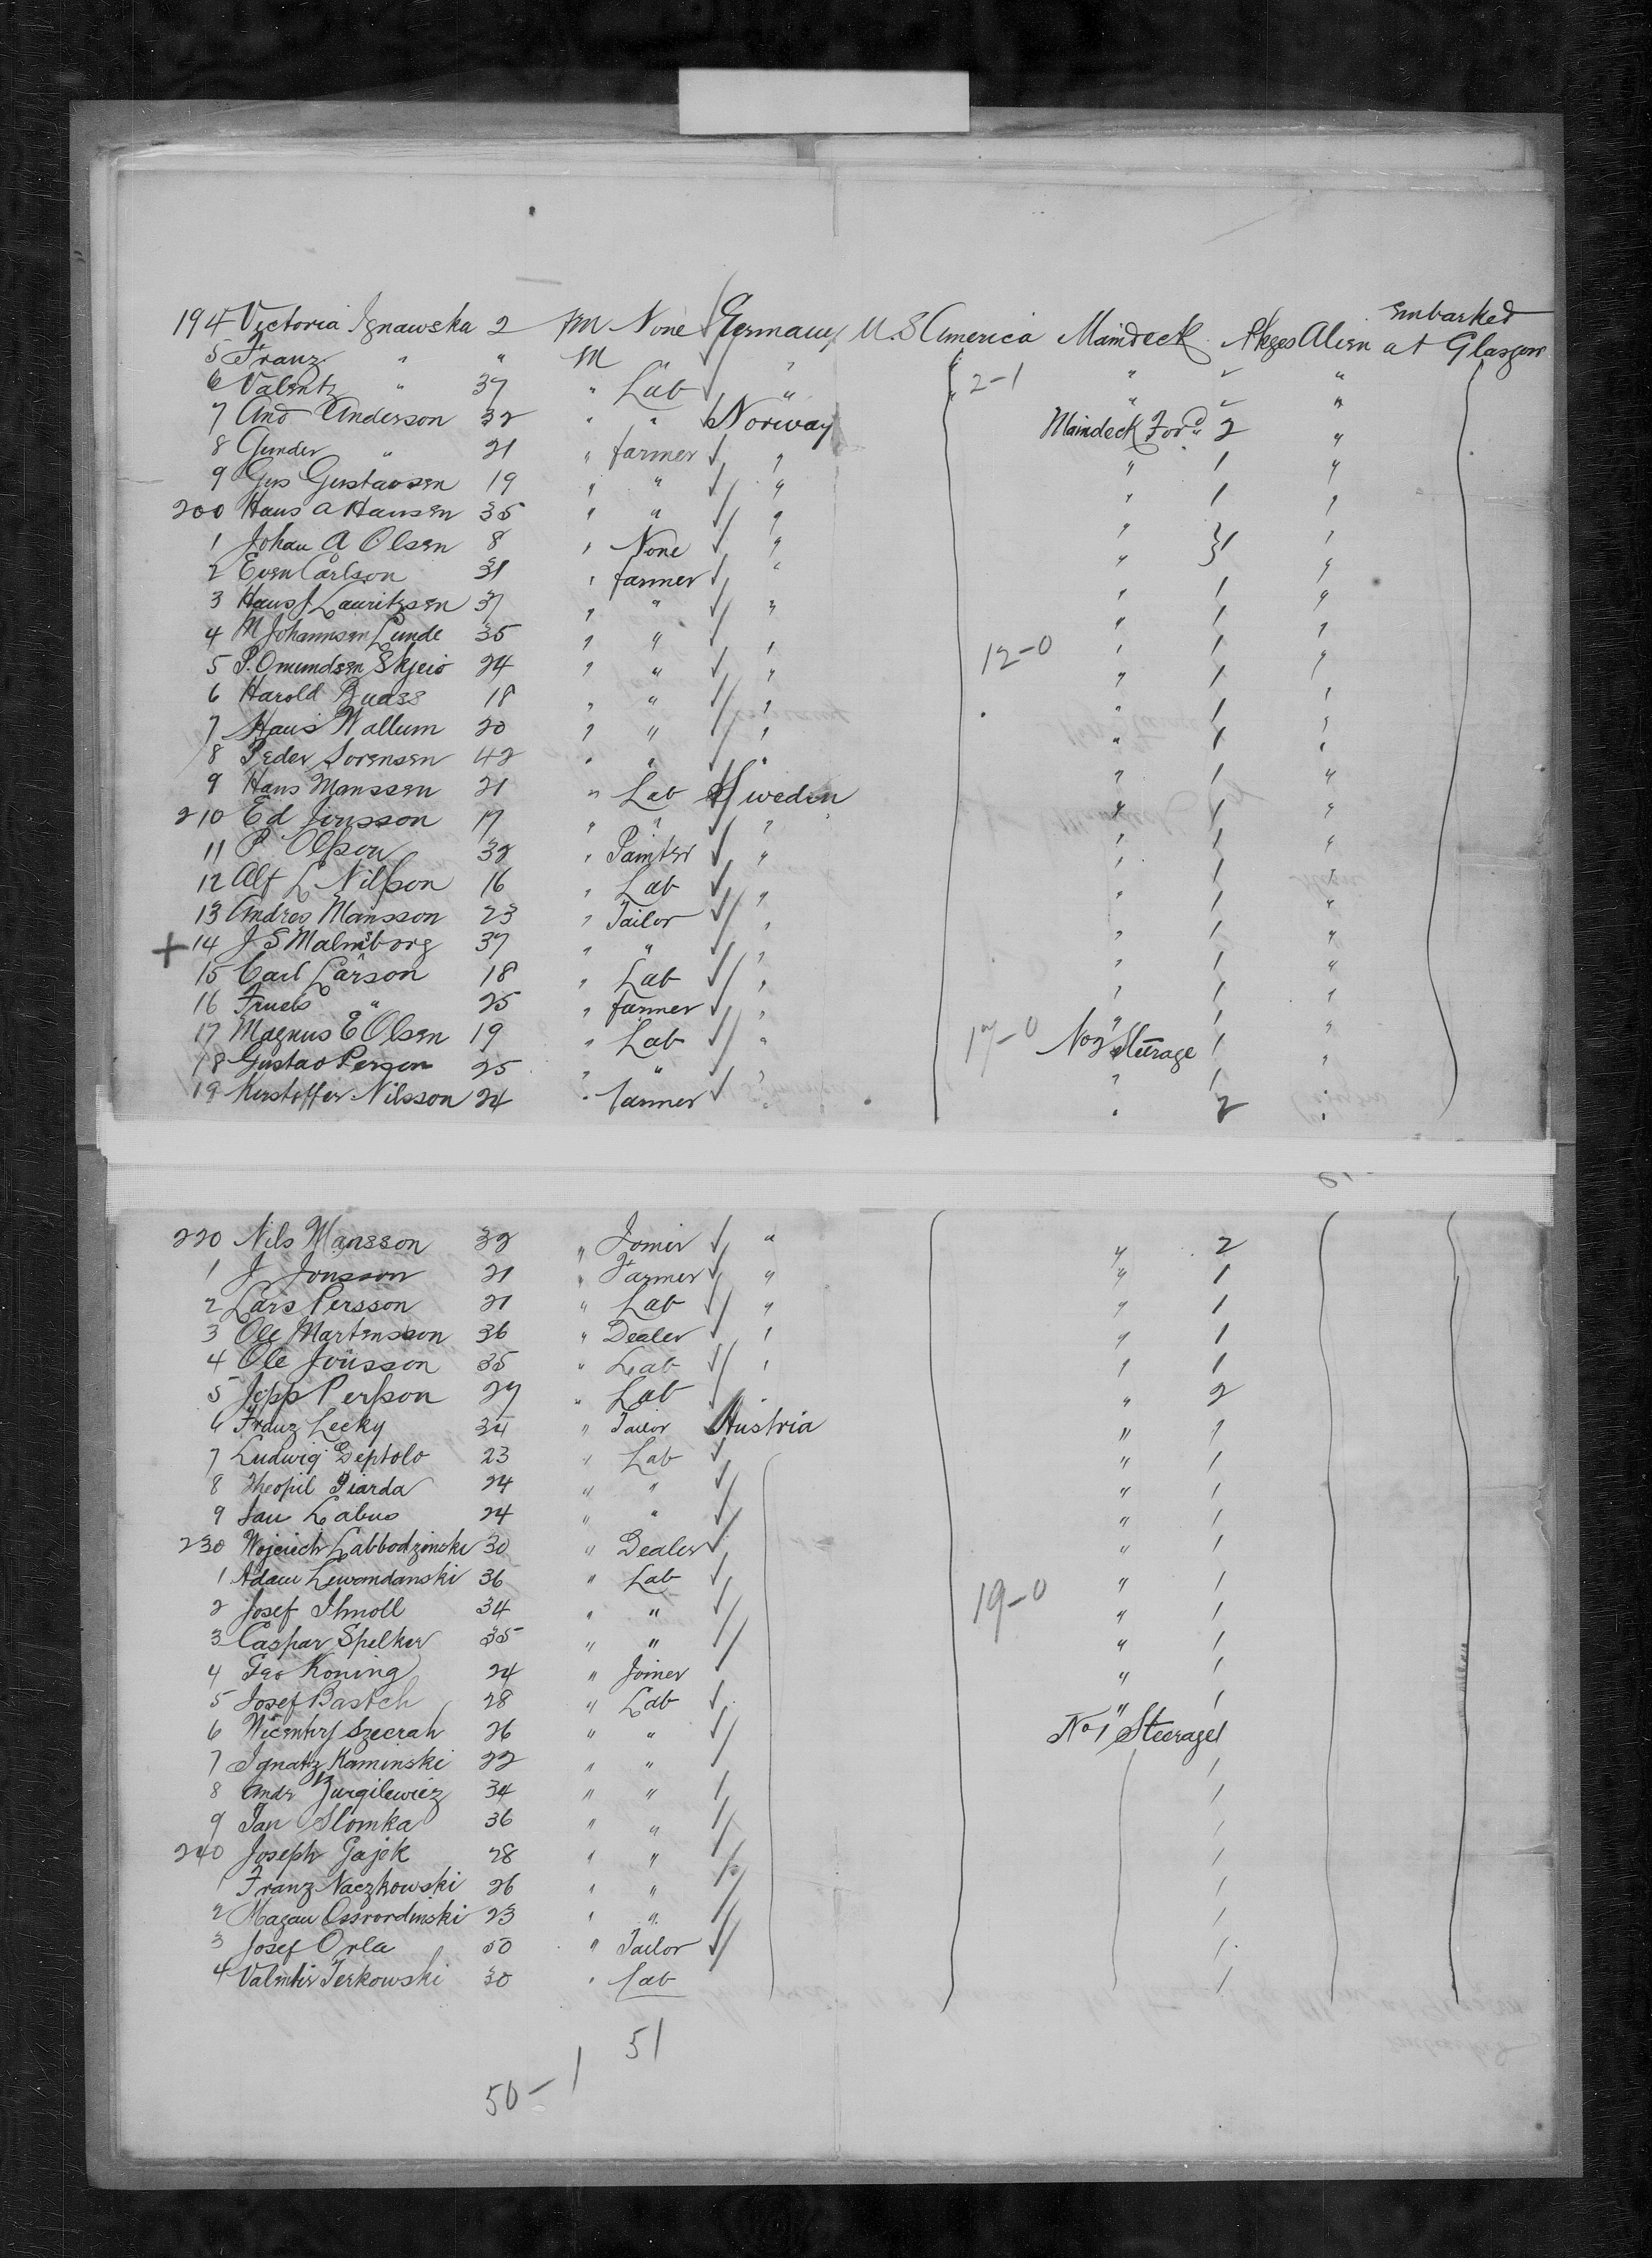 194 Victoria Ignawska 2 FM None Germany U.S America Maindeck Pkges Alien embarked at Glasgow
5 Franz " " M "
6 Valentz " 37 " Lab " 2-1 " "
7 And Anderson 32 " " Norway Maindeck Ford 2 "
8 Gunder " 21 " farmer " " 1 "
9 Gus Gustavsen 19 " " " " 1 "
200 Hans A Hansen 35 " " " "
1 Johan A Olsen 8 " None " " } 1 "
2 Even Carlson 31 " farmer " " 1 "
3 Hans J Lauritzsen 37 " " " " 1 "
4 M Johannsen Lunde 35 " " " " 1 "
5 P. Omundsen Skjeio 24 " " " 12-0 " 1 "
6 Harold 18 " " " " 1 "
7 Hans Wallum 20 " " " " 1 "
8 Peder Sorensen 42 " " " " 1 "
9 Hans Manssen 21 " Lab Sweden " 1 "
210 Ed Jonsson 17 " " " " 1 "
11 P Olsson 32 " Painter " " 1 "
12 Alf L Nilsson 16 " Lab " " 1 "
13 Andres Mansson 23 " Tailor " " 1 "
+ 14 J S Malmborg 37 " " " " 1 "
15 Carl Larson 18 " Lab " " 1 "
16 " 25 " farmer " " 1 "
17 Magnus E Olsen 19 " Lab " 17-0 No 2 Steerage 1 "
18 Gustav Persson 25 " " " " 1 "
19 Kristoffer Nilsson 24 " farmer " " 2 "
220 Nils Mansson 32 " Joiner " " 2
1 J Jonsson 21 " Farmer " " 1
2 Lars Persson 21 " Lab " " 1
3 Ole Martensson 36 " Dealer " " 1
4 Ole Jonsson 35 " Lab " " 1
5 Jepp Persson 27 " Lab " " 2
6 Franz Lecky 34 " Tailor Austria " 1
7 Ludwig Deptolo 23 " Lab " 1
8 Theopil Piarda 24 " " " 1
9 Jan Labus 24 " " " 1
230 Wojciech Labbodzinski 30 " Dealer " 1
1 Adam Lewandanski 36 " Lab " 1
2 Josef 34 " " 19-0 " 1
3 Caspar Spelker 35 " " " 1
4 Geo Koning 24 " Joiner " 1
5 Josef Bastch 28 " Lab " 1
6 Szecrah 26 " " No 1 Steerage 1
7 Ignatz Kaminski 22 " " 1
8 Andr Jurgilewicz 34 " " 1
9 Jan Slomka 36 " " 1
240 Joseph Gajek 28 " " 1
1 Franz Naczkowski 26 " " 1
2 Ossrordinski 23 " " 1
3 Josef Orla 50 " Tailor 1
4 Jerkowski 30 " Lab 1
51
50-1